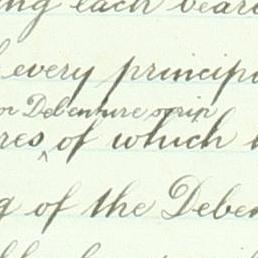 ing each bear
every princip
or Debenture scrip
res of which
g of the Deben